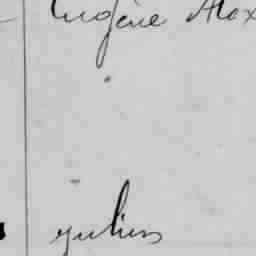 Eugène Alex
Julien